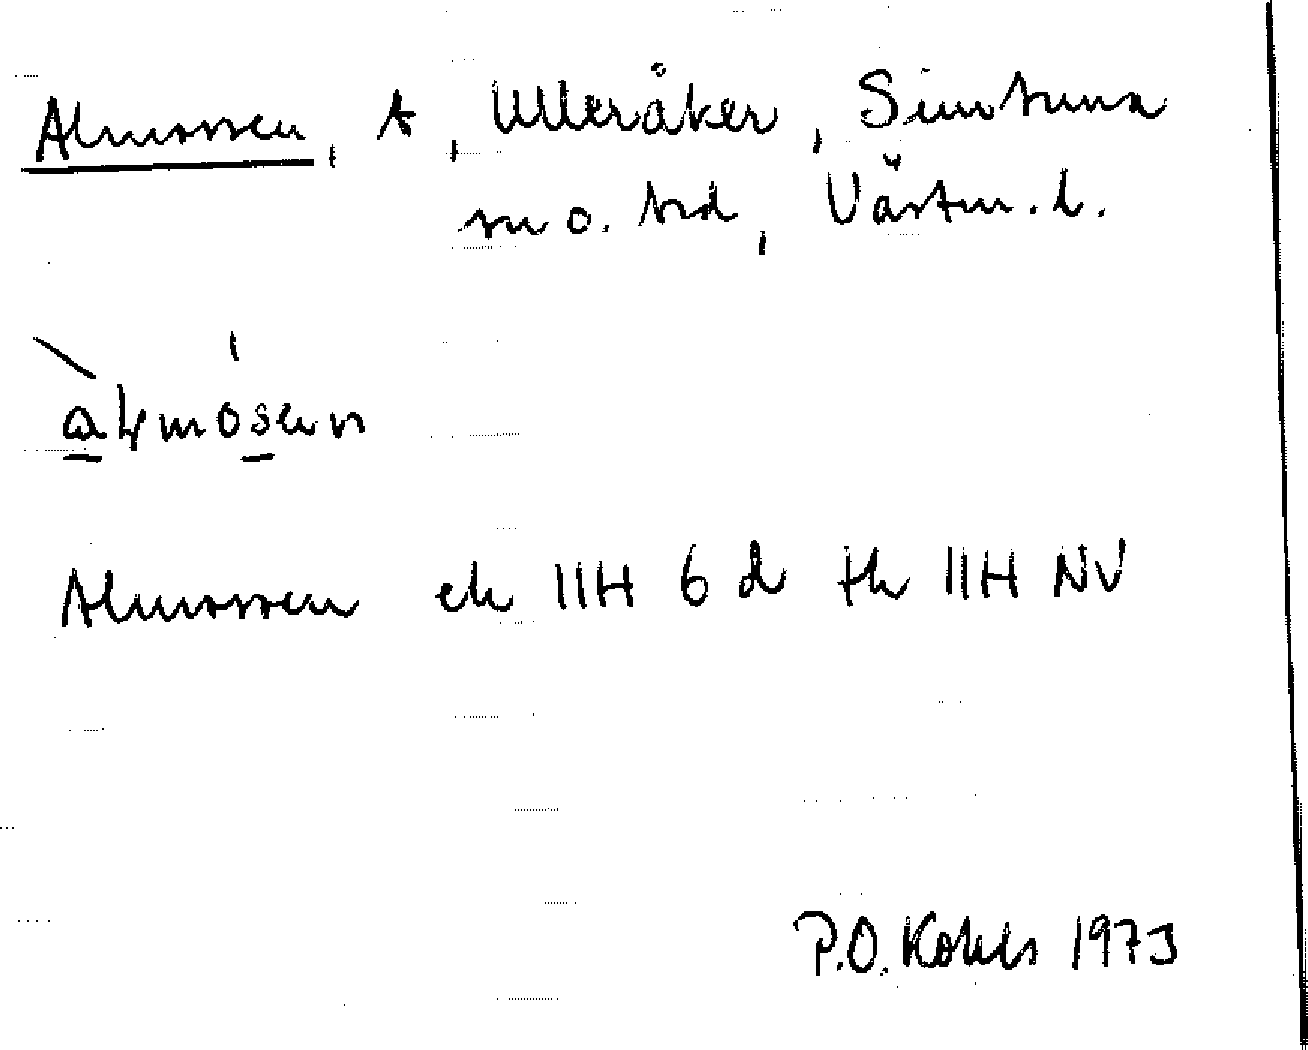 Almossen, t, Ulleråker, Simtuna
sn o. hd, Västm. l.
almosen
Almossen ek 11H 6 d tk 11H NV
P.O. Kohls 1973